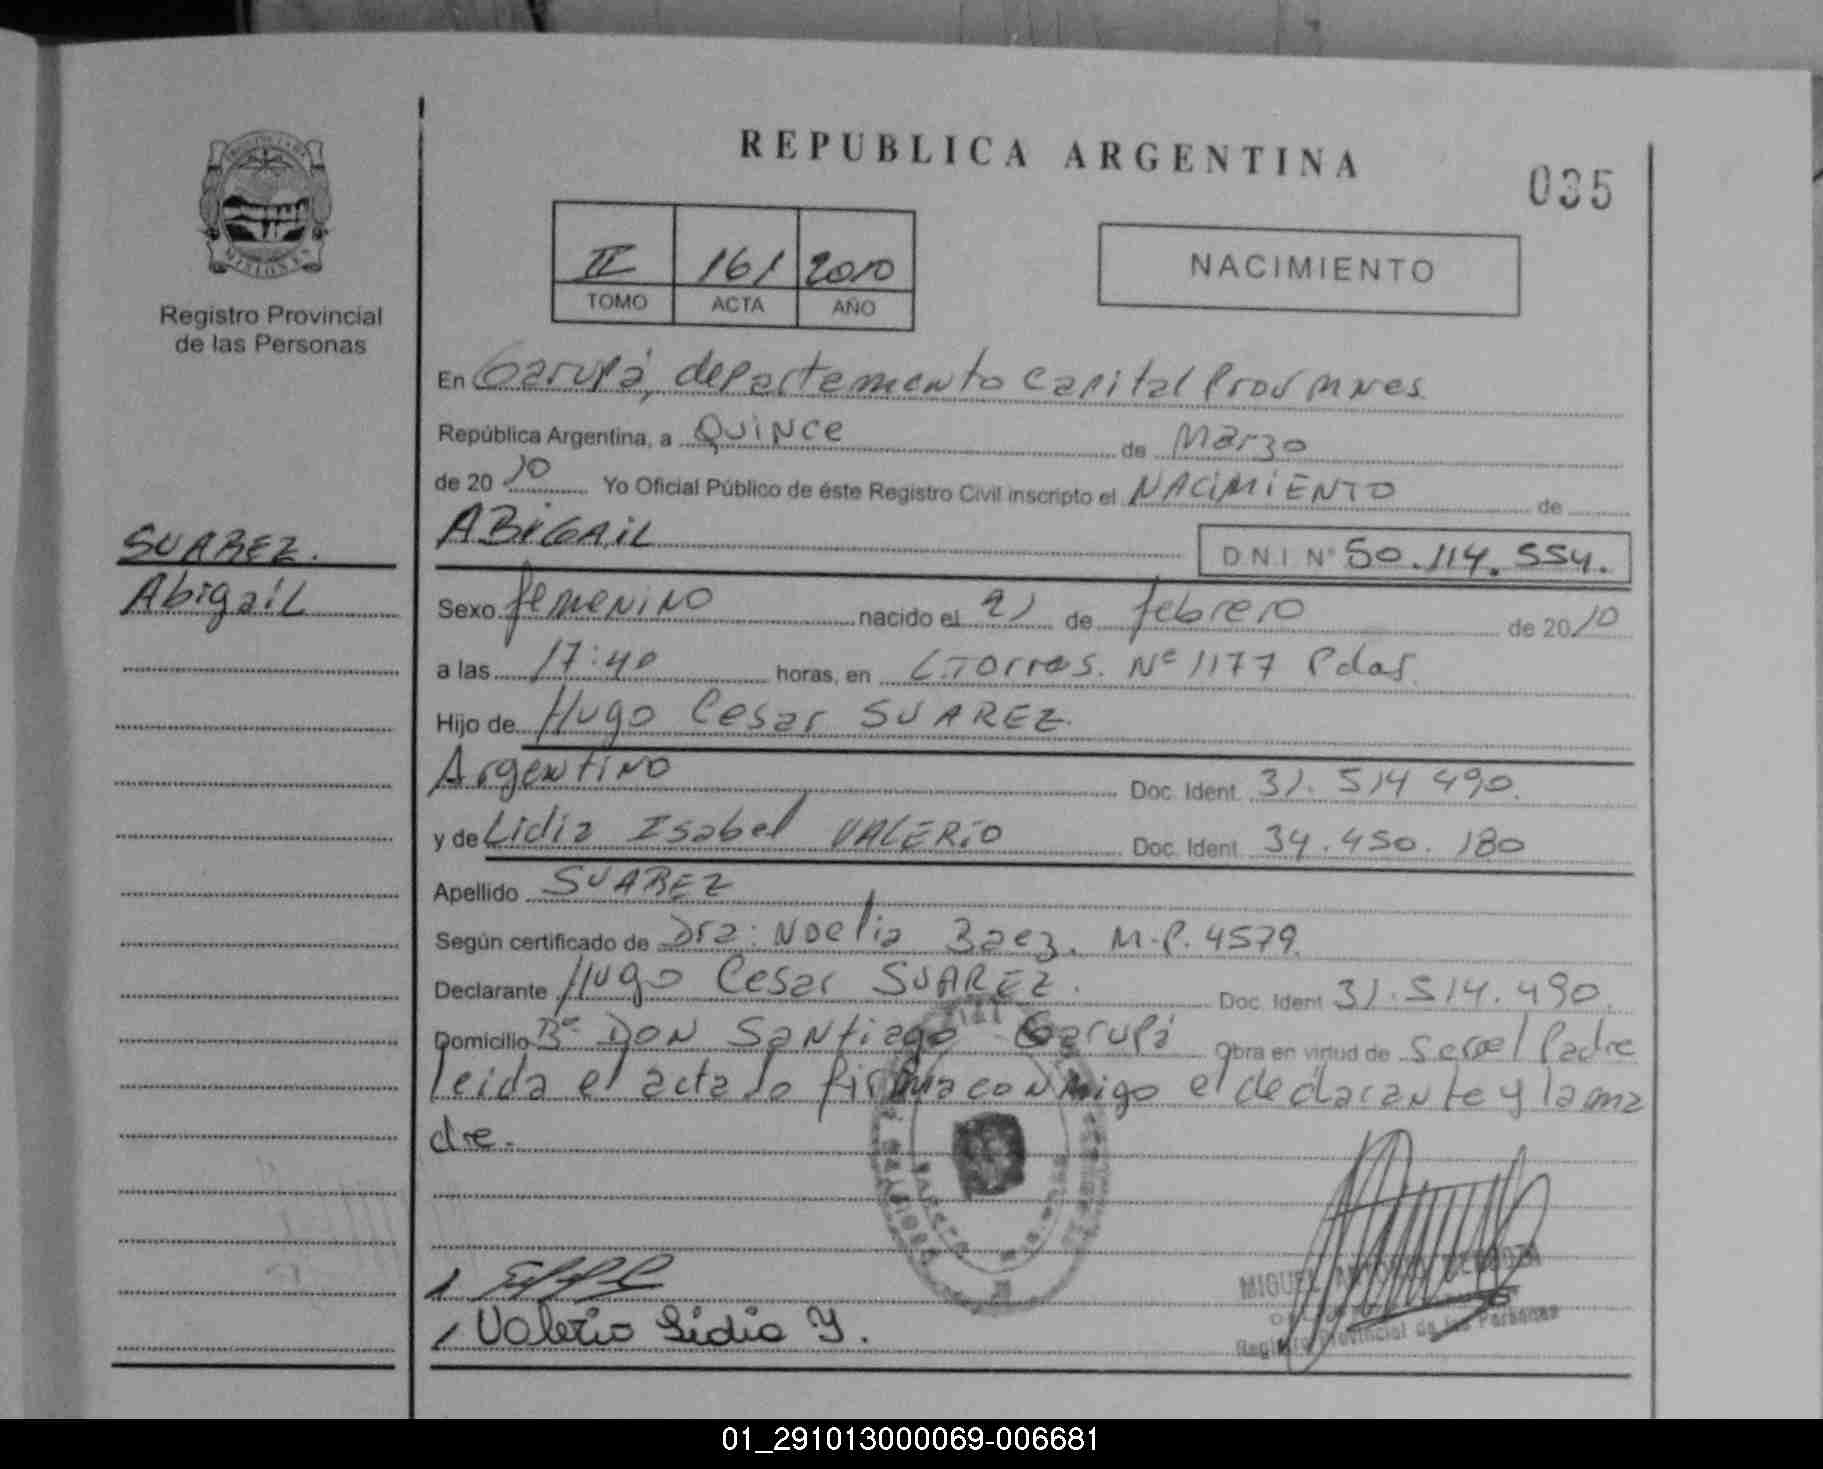 REPUBLICA ARGENTINA
035
MISIONES
Registro Provincial
de las Personas
II 161 2010
TOMO ACTA AÑO
NACIMIENTO
En Garupá, departemento Capital Prov Mnes
República Argentina, a Quince de Marzo
de 2010 Yo Oficial Público de éste Registro Civil inscripto el NACIMIENTO de
ABIGAIL D.N.I. Nº 50.114.554.
SUAREZ.
Abigail
Sexo femenino nacido el 21 de febrero de 2010
a las 17:40 horas, en L.Torres. Nº 1177 Pdas.
Hijo de Hugo Cesar SUAREZ.
Argentino Doc. Ident. 31.514 490.
y de Lidia Isabel VALERIO Doc. Ident. 34.450.180
Apellido SUAREZ
Según certificado de Dra: Noelia Baez. M.P. 4579.
Declarante Hugo Cesar SUAREZ. Doc. Ident 31.514.490.
Domicilio Bº DON Santiago Garupá Obra en virtud de ser el Padre
leida el acta lo firma conmigo el declarante y la ma
dre.
Valerio Lidia Y.
MIGUEL
Registro Provincial de las Personas
01_291013000069-006681